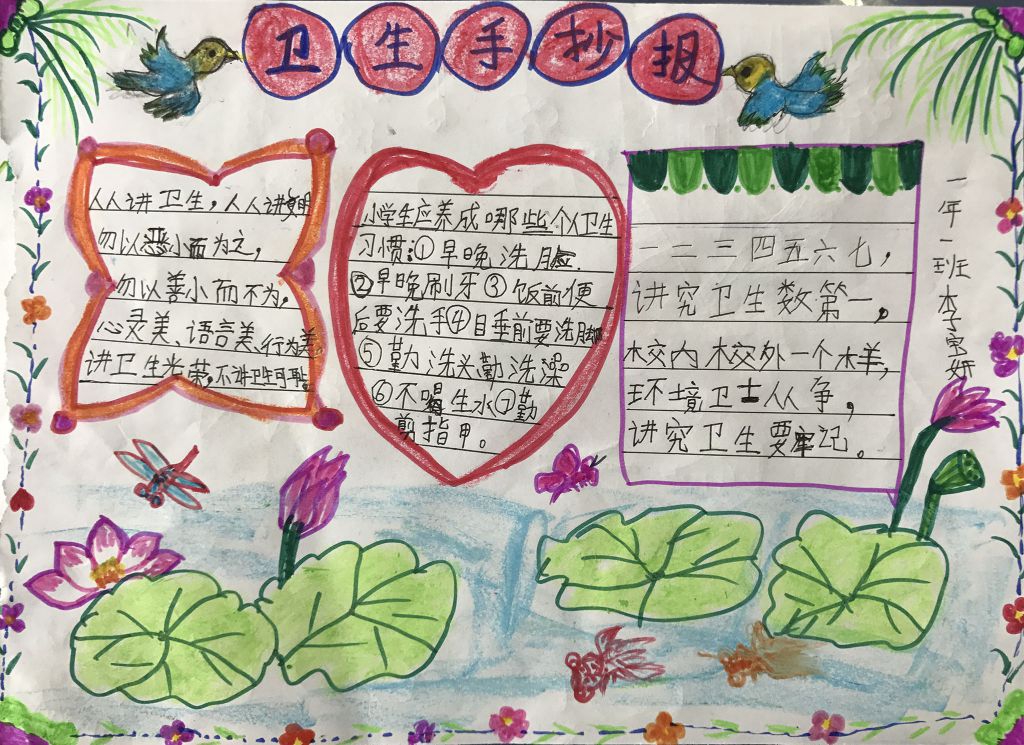 卫生手抄报
人人讲卫生，人人讲文明
勿以恶小而为之，
勿以善小而不为，
心灵美、语言美、行为美
讲卫生光荣，不讲卫生可耻
小学生应养成哪些个人卫生
习惯：①早晚洗脸.
②早晚刷牙③饭前便
后要洗手④目垂前要洗脚
⑤勤洗头勤洗澡
⑥不喝生水⑦勤
剪指甲。
一二三四五六七，
讲究卫生数第一。
校内校外一个样，
环境卫士人人争，
讲究卫生要牢记。
一年一班李宝妍